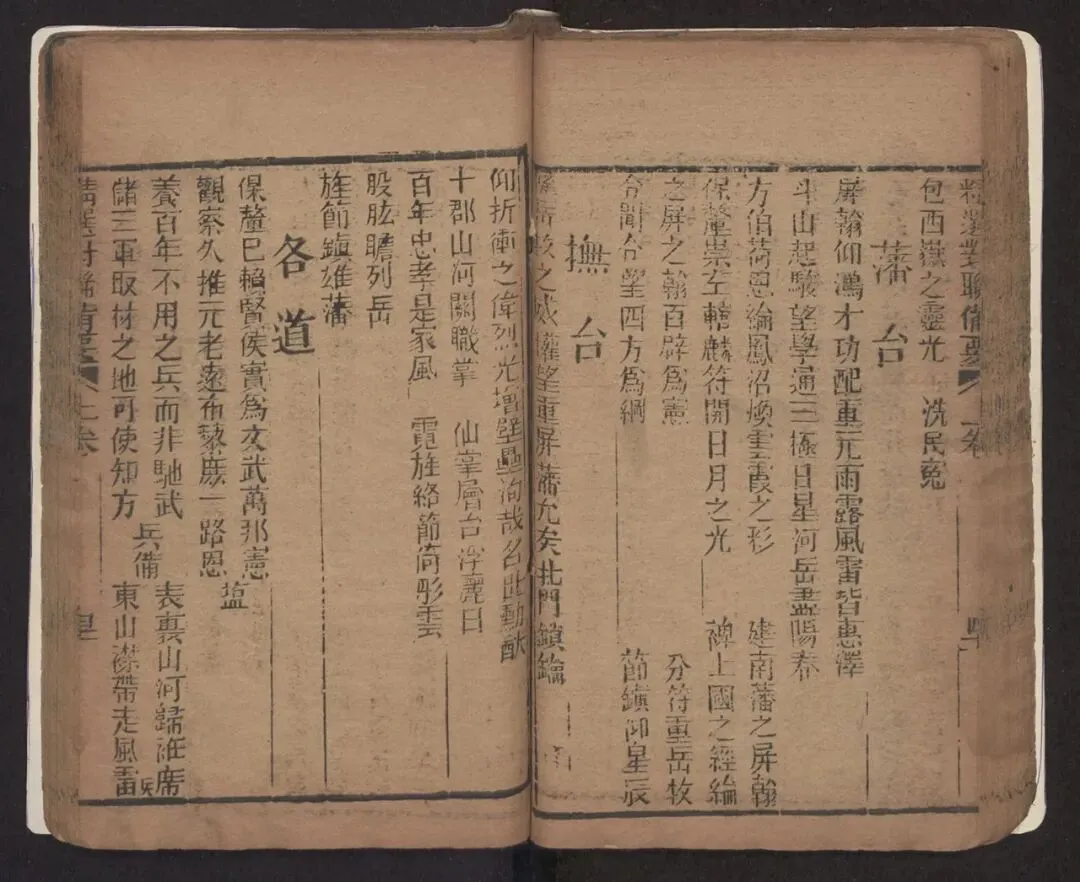 精選對聯備要 上卷
包西嶽之靈光 洗民冤
藩台
屏翰仰鴻才功配重元雨露風雷皆惠澤
斗山起駿望學通三極日星河岳盡陽春
方伯荷恩綸鳳沼煥雲霞之彩 建南藩之屏翰
保釐崇左轄麟符開日月之光 裨上國之經綸
之屏之翰百辟為憲 分符重岳牧
令聞令望四方為綱 節鎮仰星辰
撫台
之威權望重屏藩允矣北門鎖鑰
仰折衝之偉烈光增壁壘洵哉名世勳猷
十郡山河關職掌 仙掌層台浮麗日
百年忠孝是家風 霓旌絡節倚彤雲
股肱瞻列岳
旌節鎮雄藩
各道
保釐已賴賢侯實為文武萬邦憲
觀察久推元老遠布黎庶一路恩 塩
養百年不用之兵而非馳武 表裏山河歸袵席
儲三軍取材之地可使知方 兵備 東山襟帶走風雷 兵
精選對聯備要 上卷